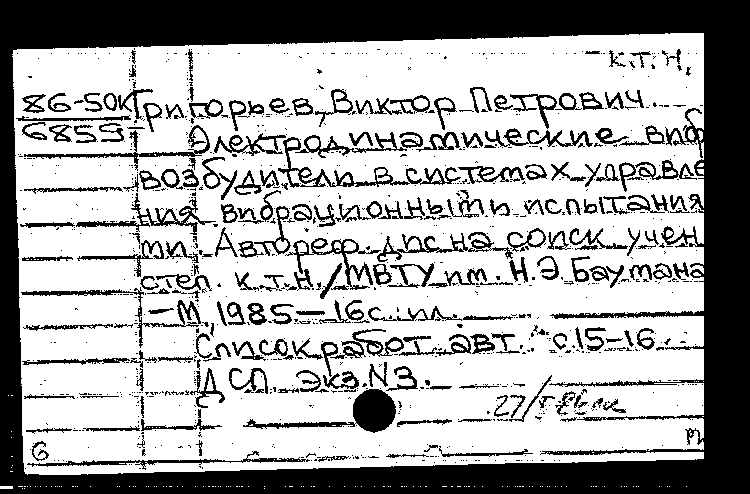 к.т.н.
86-50К Григорьев, Виктор Петрович.
6855 Электродинамические виб
возбудители в системах управле
ния вибрационными испытания
ми. Автореф. дис на соиск. учен
степ. к.т.н./МВТУ им. Н.Э.Баумана
—М 1985—16с.: ил.
Список работ авт.: с.15–16.
ДСП. Экз.N3.
27/I
6